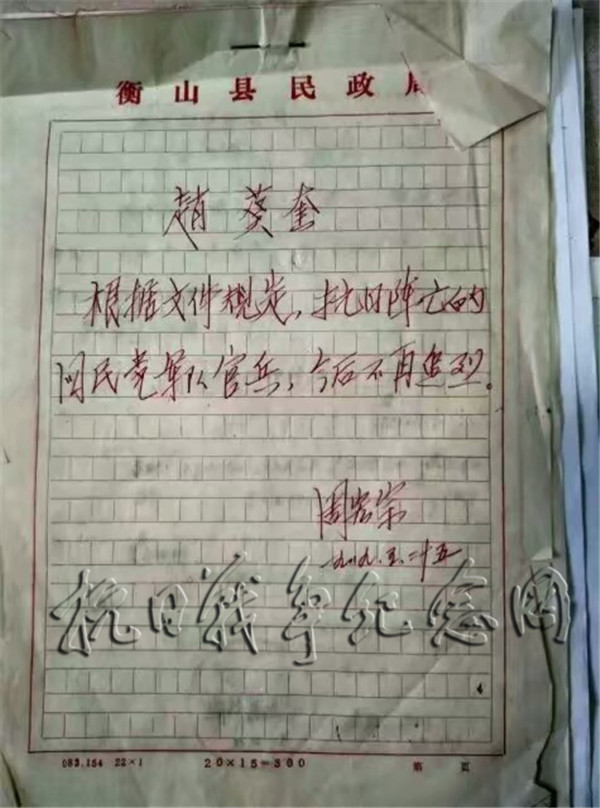 衡山县民政局
趙葵奎
根据文件规定，抗日阵亡的
国民党军队官兵，今后不再追烈。
周宏宗
抗日战争纪念网
083.154 22×1 20×15=300 第 页